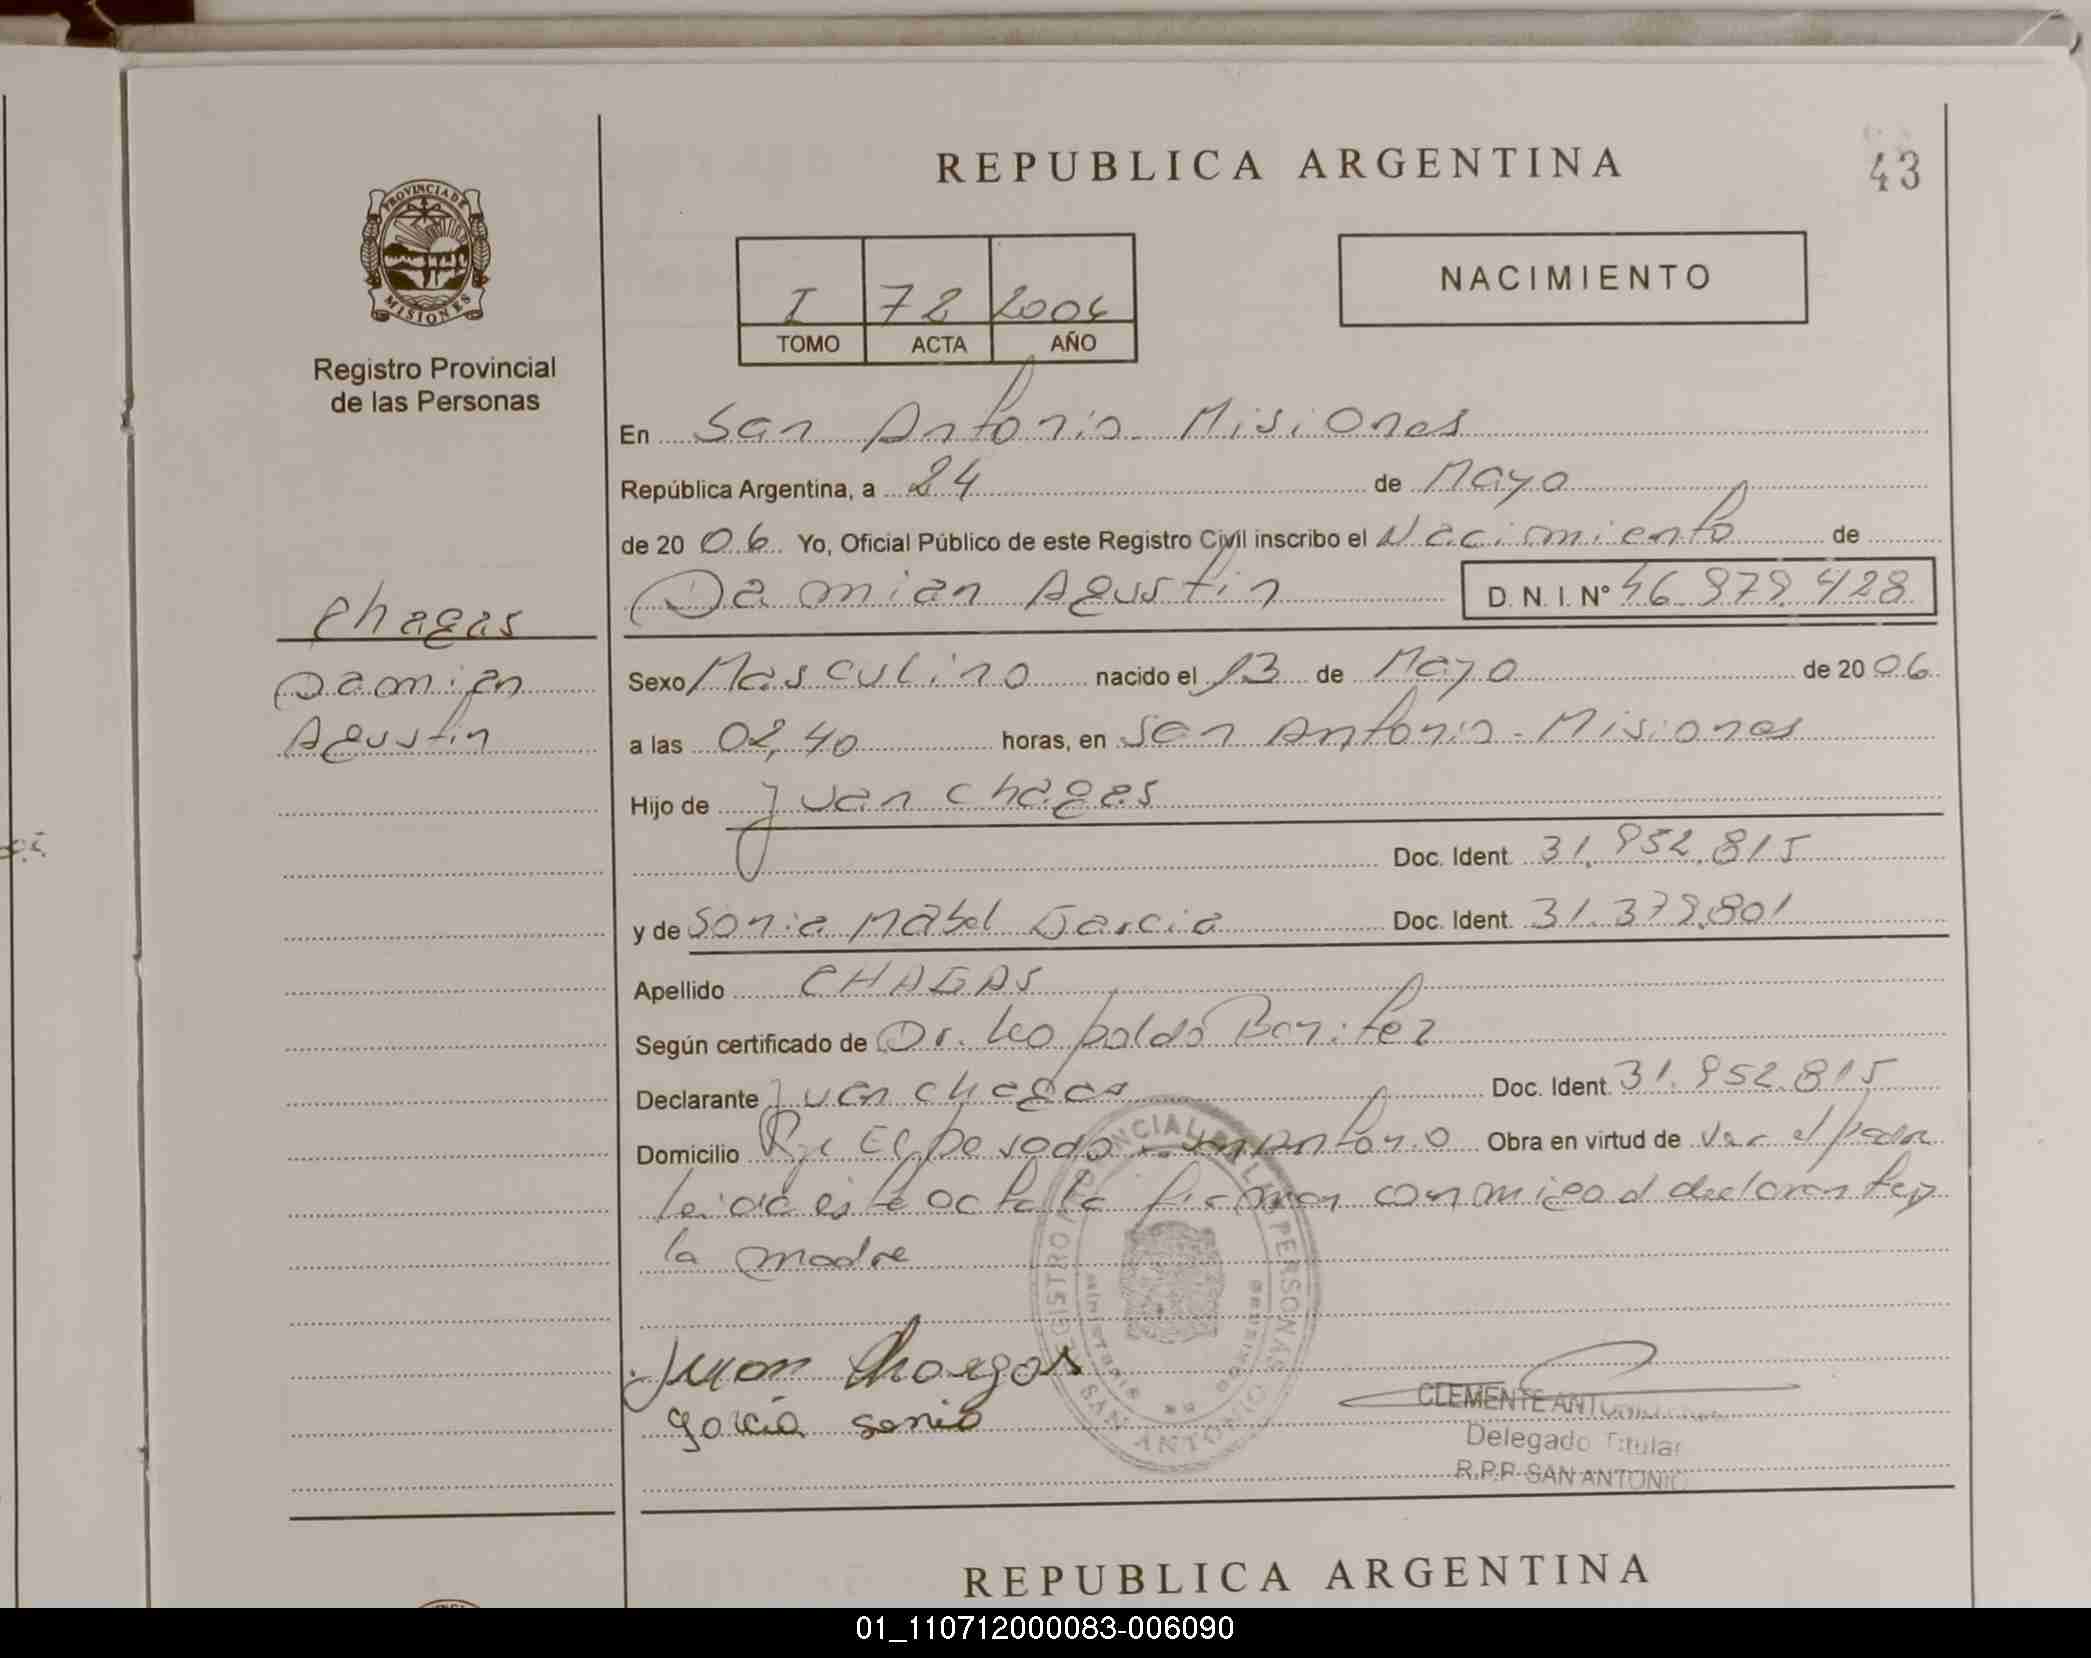 REPUBLICA ARGENTINA
43
PROVINCIA DE
MISIONES
Registro Provincial
de las Personas
NACIMIENTO
I 72 2006
TOMO ACTA AÑO
En San Antonio - Misiones
República Argentina, a 24 de Mayo
de 20 06 Yo, Oficial Público de este Registro Civil inscribo el Nacimiento de
Damian Agustin D. N. I. Nº 46.979.428
Chagas
Damian
Agustin
Sexo Masculino nacido el 13 de Mayo de 20 06
a las 02,40 horas, en San Antonio - Misiones
Hijo de Juan Chagas
Doc. Ident. 31.952.815
y de Sonia Mabel Garcia Doc. Ident. 31.379.801
Apellido CHAGAS
Según certificado de Dr. Leopoldo Benitez
Declarante Juan Chagas Doc. Ident. 31.952.815
Domicilio El Pesado - San Antonio Obra en virtud de ser el padre
leida este acta la firman conmigo el declarante y
la madre
Juan Chargas
garcia sonia
REGISTRO PROVINCIAL DE LAS PERSONAS
SAN ANTONIO
CLEMENTE ANTONIO
Delegado Titular
R.P.P. SAN ANTONIO
REPUBLICA ARGENTINA
01_110712000083-006090